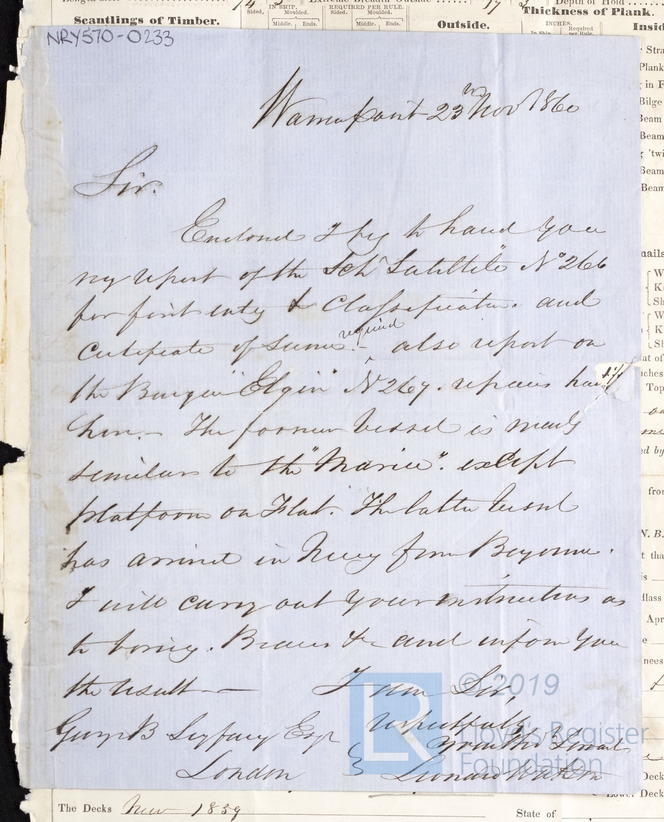 Scantlings of Timber.
IN SHIP.
REQUIRED PER RULE.
Sided,
Moulded.
Middle.
Ends.
Outside.
Depth of Hold
Thickness of Plank.
INCHES.
Insid
NRY570-0233
23rd Nov 1860
Sir.
Enclosed I beg to hand you
my report of the Schr "Satellite" No 266
for first entry & Classification. and
Certificate of same required - also report on
the "Elgin" No 267. repairs
The former vessel is nearly
similar to the "Marie". except
platform on Flat. The latter vessel
has arrived in from Bayonne.
I will carry out your instructions as
to boring. Braces &c and inform you
the result
I am Sir,
Respectfully
Your Obt Servant
George B Seyfang Esqr
London
Leonard Watson
© 2019
Lloyd's Register
Foundation
The Decks New 1859
State of